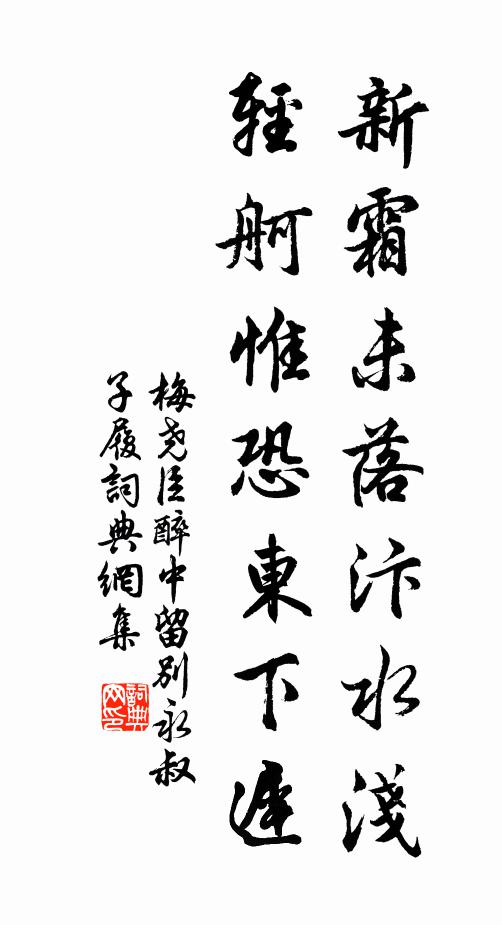 新霜未落汴水淺
輕舸惟恐東下遲
梅堯臣醉中留別永叔
子履詞典網集
詞典網印